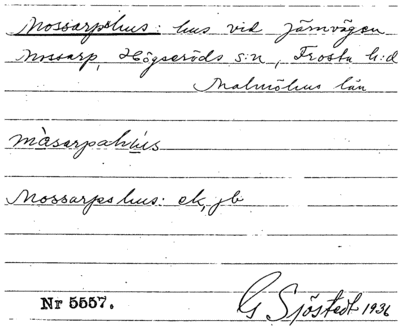 Mossarpshus: hus vid järnvägen
Mossarp, Högseröds s:n, Frosta h:d
Malmöhus län
màsarpahús
Mossarpshus: ek, jb
Nr 5557.
G Sjöstedt 1936